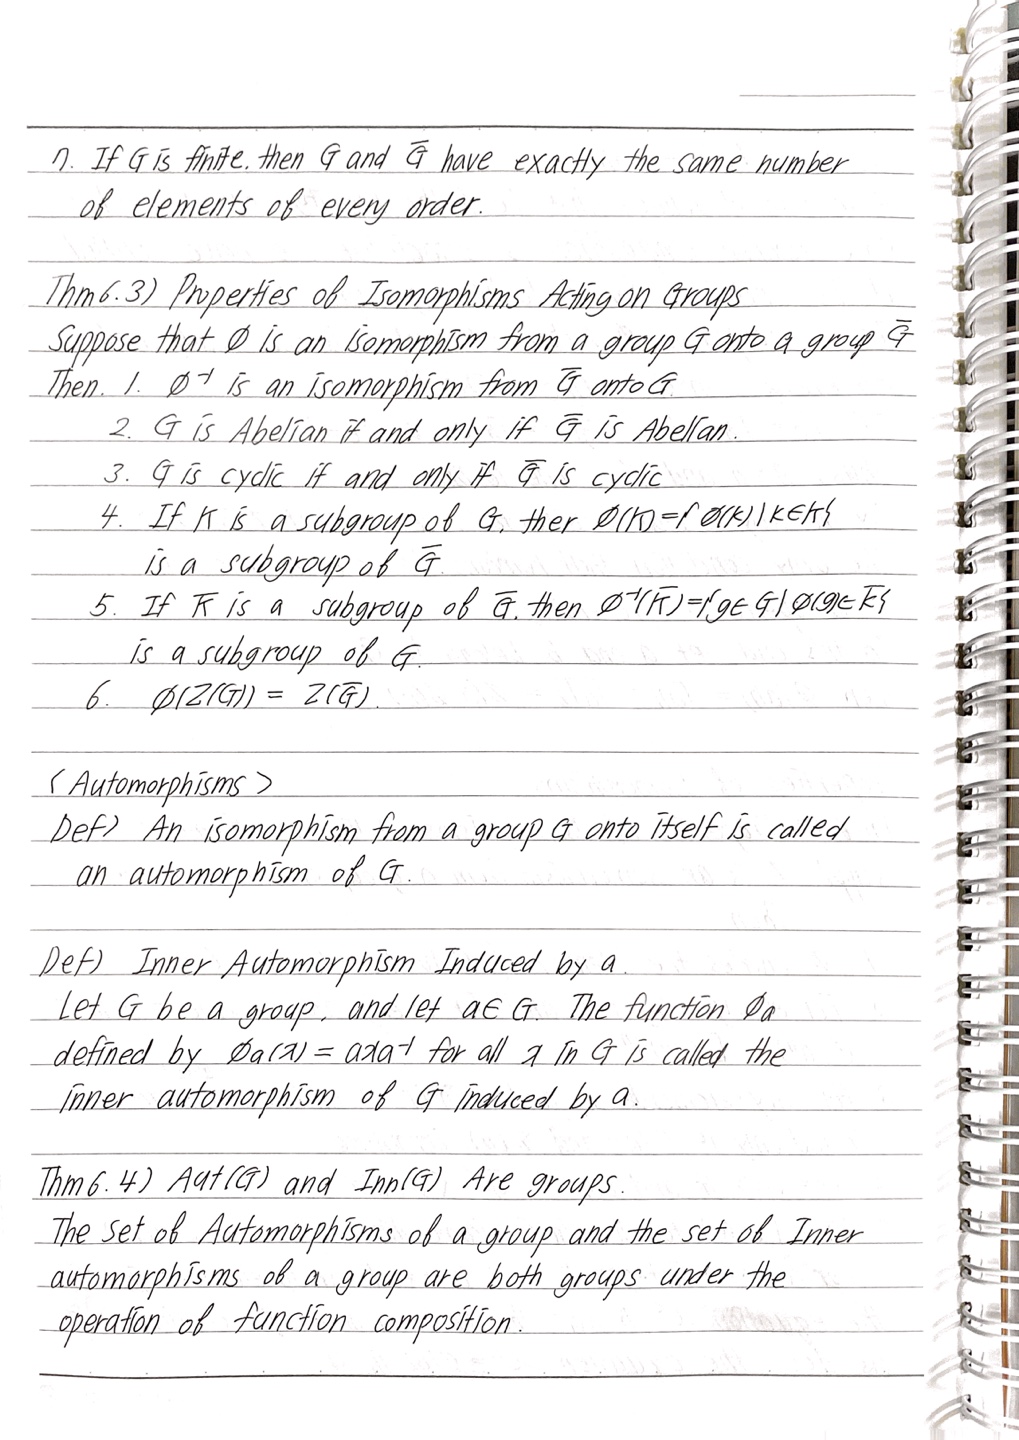 7. If G is finite. then G and G̅ have exactly the same number
of elements of every order.
Thm 6.3) Properties of Isomorphisms Acting on Groups
Suppose that ∅ is an isomorphism from a group G onto a group G̅
Then. 1. ∅⁻¹ is an isomorphism from G̅ onto G
2. G is Abelian if and only if G̅ is Abelian.
3. G is cyclic if and only if G̅ is cyclic
4. If K is a subgroup of G, then ∅(K)={∅(k)|k∈K}
is a subgroup of G̅.
5. If K̅ is a subgroup of G̅, then ∅⁻¹(K̅)={g∈G|∅(g)∈K̅}
is a subgroup of G.
6. ∅(Z(G)) = Z(G̅).
<Automorphisms>
Def) An isomorphism from a group G onto itself is called
an automorphism of G.
Def) Inner Automorphism Induced by a.
Let G be a group, and let a∈G. The function ∅a
defined by ∅a(x)=axa⁻¹ for all x in G is called the
inner automorphism of G induced by a.
Thm 6.4) Aut(G) and Inn(G) Are groups.
The set of Automorphisms of a group and the set of Inner
automorphisms of a group are both groups under the
operation of function composition.